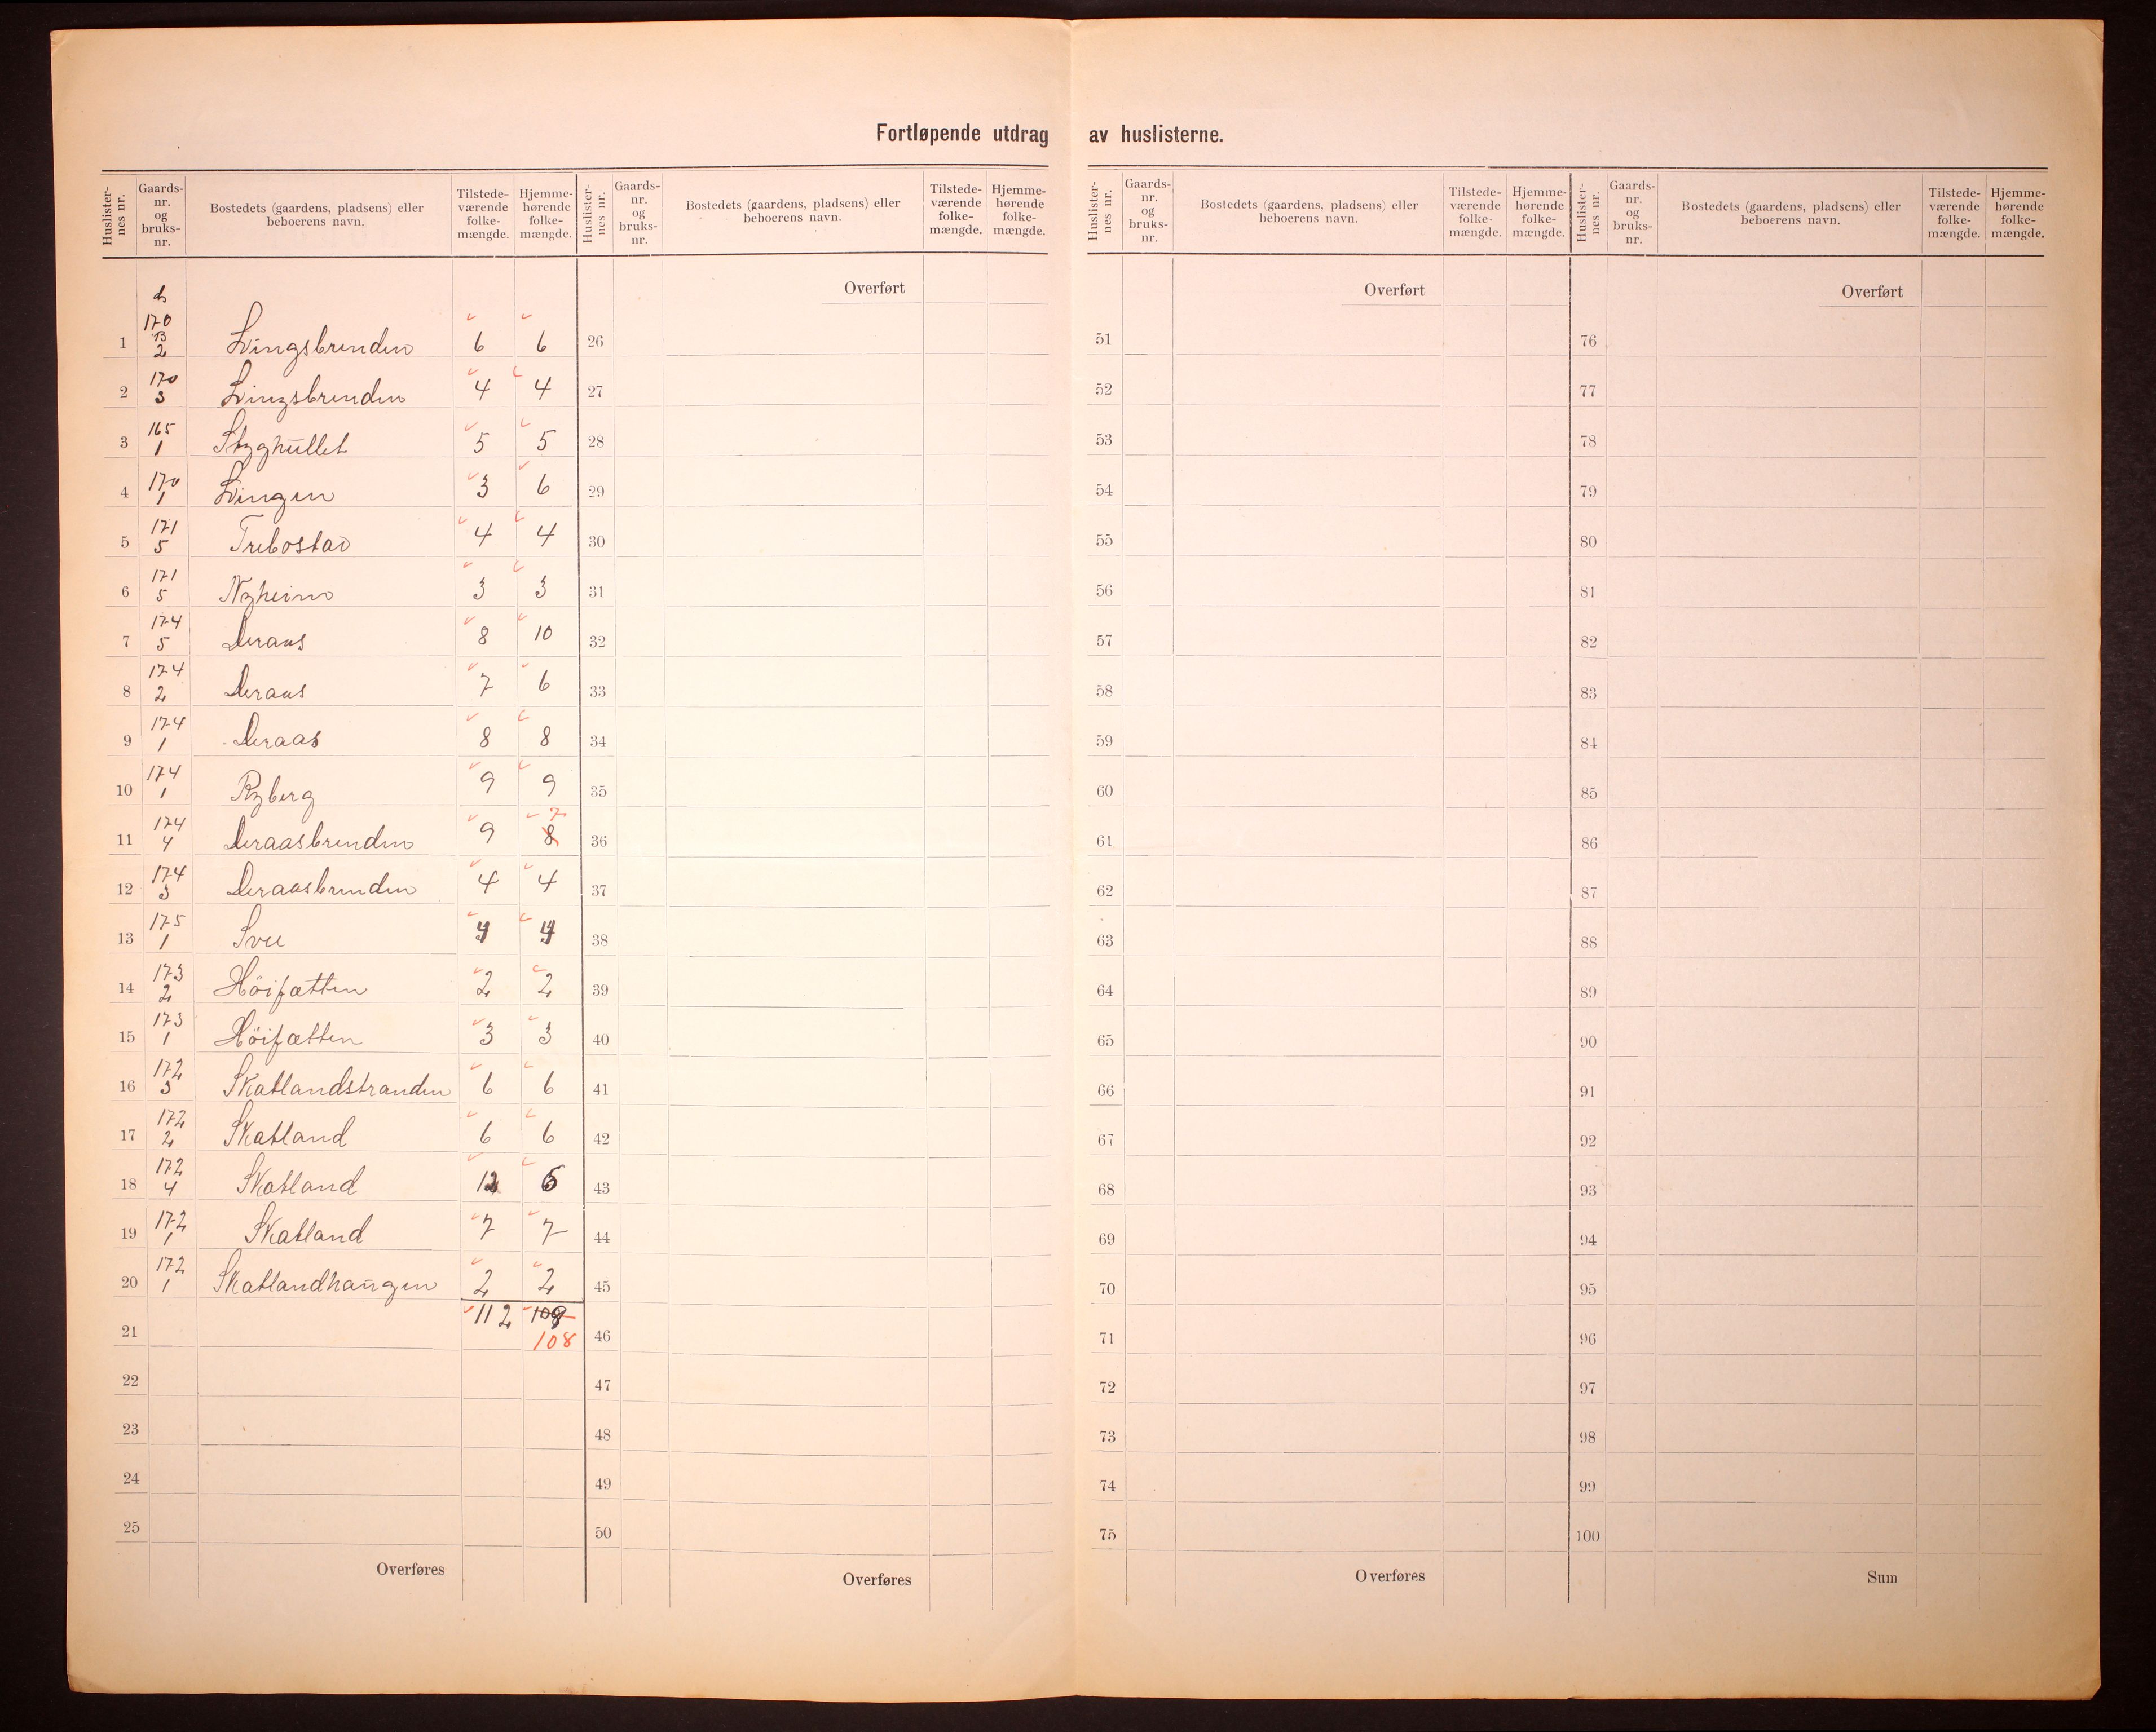 Fortløpende utdrag av huslisterne.
Huslisternes nr. | Gaards-nr. og bruks-nr. | Bostedets (gaardens, pladsens) eller beboerens navn. | Tilstede-værende folke-mængde. | Hjemme-hørende folke-mængde.
Huslisternes nr. | Gaards-nr. og bruks-nr. | Bostedets (gaardens, pladsens) eller beboerens navn. | Tilstede-værende folke-mængde. | Hjemme-hørende folke-mængde.
Huslisternes nr. | Gaards-nr. og bruks-nr. | Bostedets (gaardens, pladsens) eller beboerens navn. | Tilstede-værende folke-mængde. | Hjemme-hørende folke-mængde.
Huslisternes nr. | Gaards-nr. og bruks-nr. | Bostedets (gaardens, pladsens) eller beboerens navn. | Tilstede-værende folke-mængde. | Hjemme-hørende folke-mængde.
Overført Overført Overført
1 170 B 2 Lvingsbrenden 6 6 26 51 76
2 170 3 Lvingsbrenden 4 4 27 52 77
3 165 1 Styghullet 5 5 28 53 78
4 170 1 Lvingen 3 6 29 54 79
5 171 5 Trebostad 4 4 30 55 80
6 171 5 Nyheim 3 3 31 56 81
7 174 5 Deraas 8 10 32 57 82
8 174 2 Deraas 7 6 33 58 83
9 174 1 Deraas 8 8 34 59 84
10 174 1 Ryberg 9 9 35 60 85
11 174 4 Deraasbrenden 9 8 7 36 61 86
12 174 3 Deraasbrenden 4 4 37 62 87
13 175 1 Svee 4 4 38 63 88
14 173 2 Höifætten 2 2 39 64 89
15 173 1 Höifætten 3 3 40 65 90
16 172 3 Skatlandstranden 6 6 41 66 91
17 172 2 Skatland 6 6 42 67 92
18 172 4 Skatland 12 6 43 68 93
19 172 1 Skatland 7 7 44 69 94
20 172 1 Skatlandhaugen 2 2 45 70 95
21 112 109 108 46 71 96
22 47 72 97
23 48 73 98
24 49 74 99
25 50 75 100
Overføres Overføres Overføres Sum